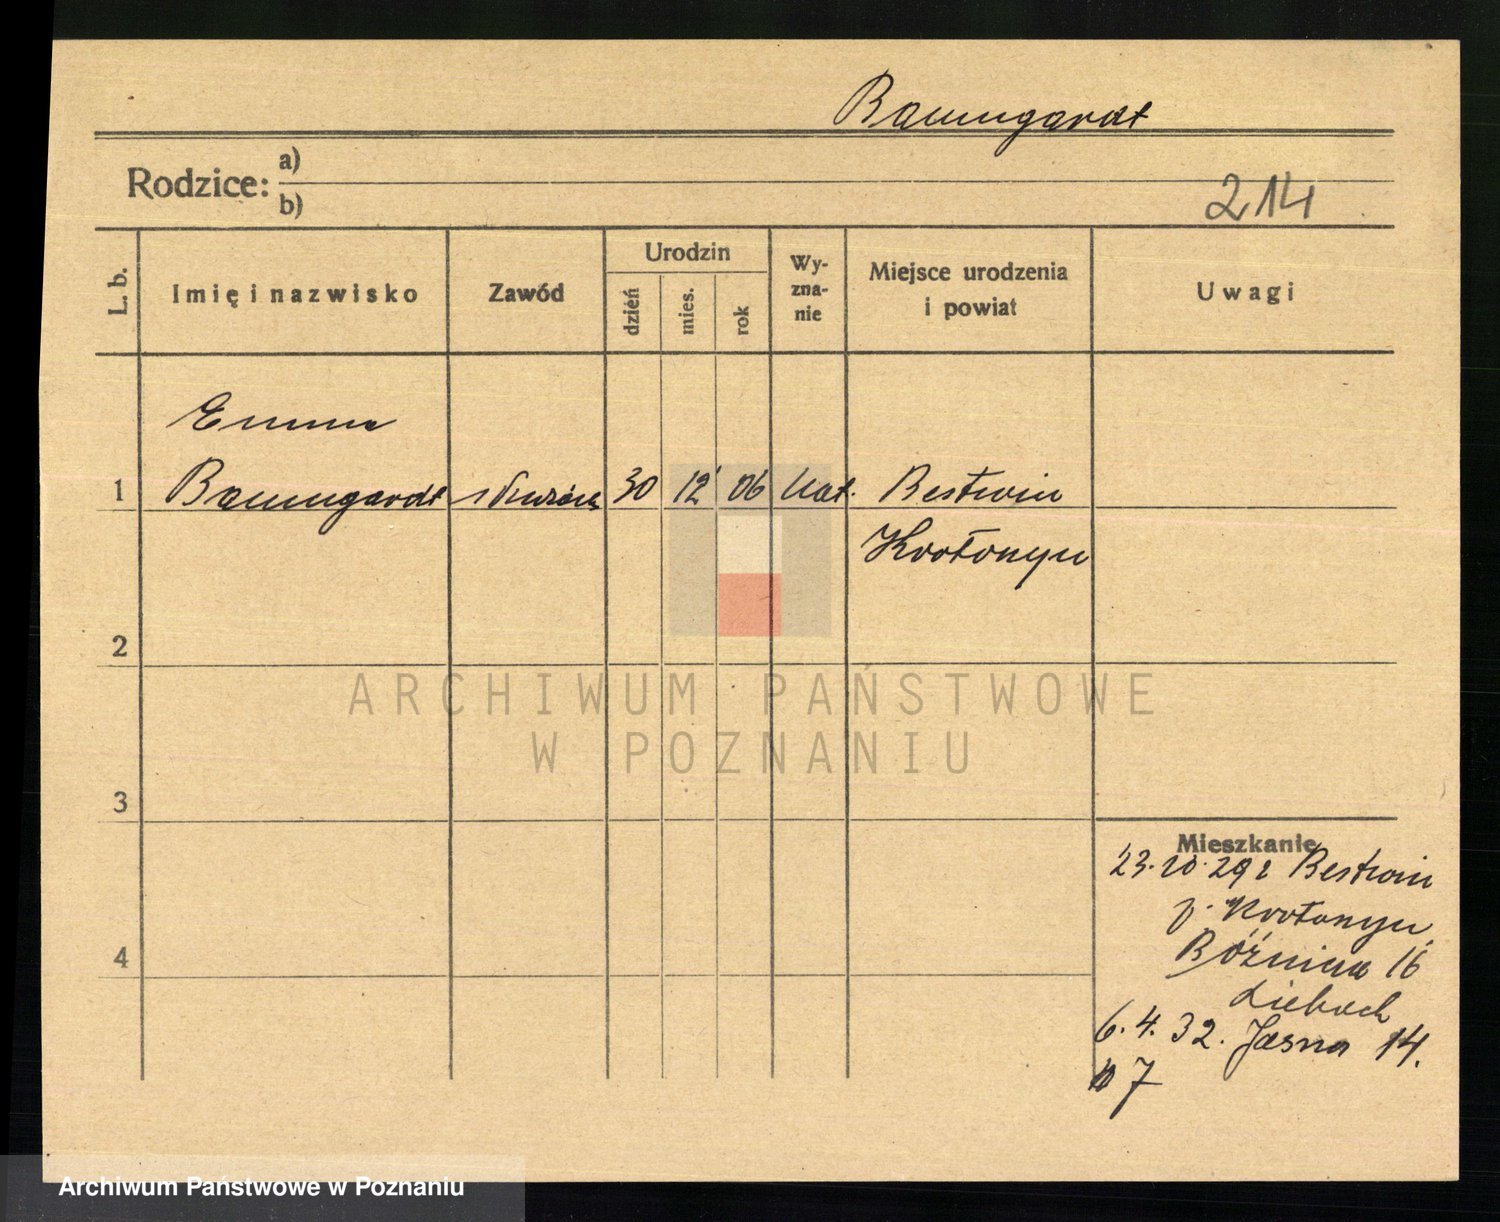 Baumgardt
Rodzice: a)
b)
214
L. b.
Imię i nazwisko
Zawód
Urodzin
dzień
mies.
rok
Wy-
zna-
nie
Miejsce urodzenia
i powiat
Uwagi
Emma
1 Baumgardt 30 12 06 kat. Bestwin
Krotoszyn
2
3
4
Mieszkanie
23.10.29 r Bestwin
p. Krotoszyn
Bóźnicza 16
6.4.32. Jasna 14.
7
ARCHIWUM PAŃSTWOWE
W POZNANIU
Archiwum Państwowe w Poznaniu